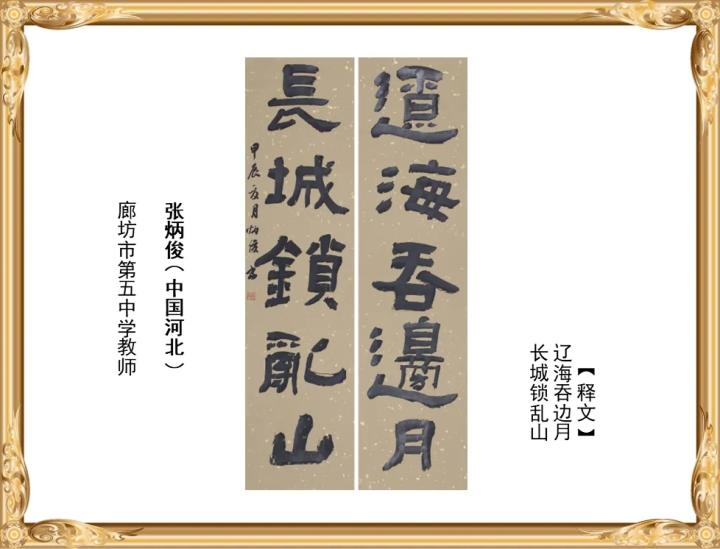 【释文】
辽海吞边月
长城锁乱山
遼海吞邊月
長城鎖亂山
甲辰夏月炳俊書
张炳俊(中国河北)
廊坊市第五中学教师